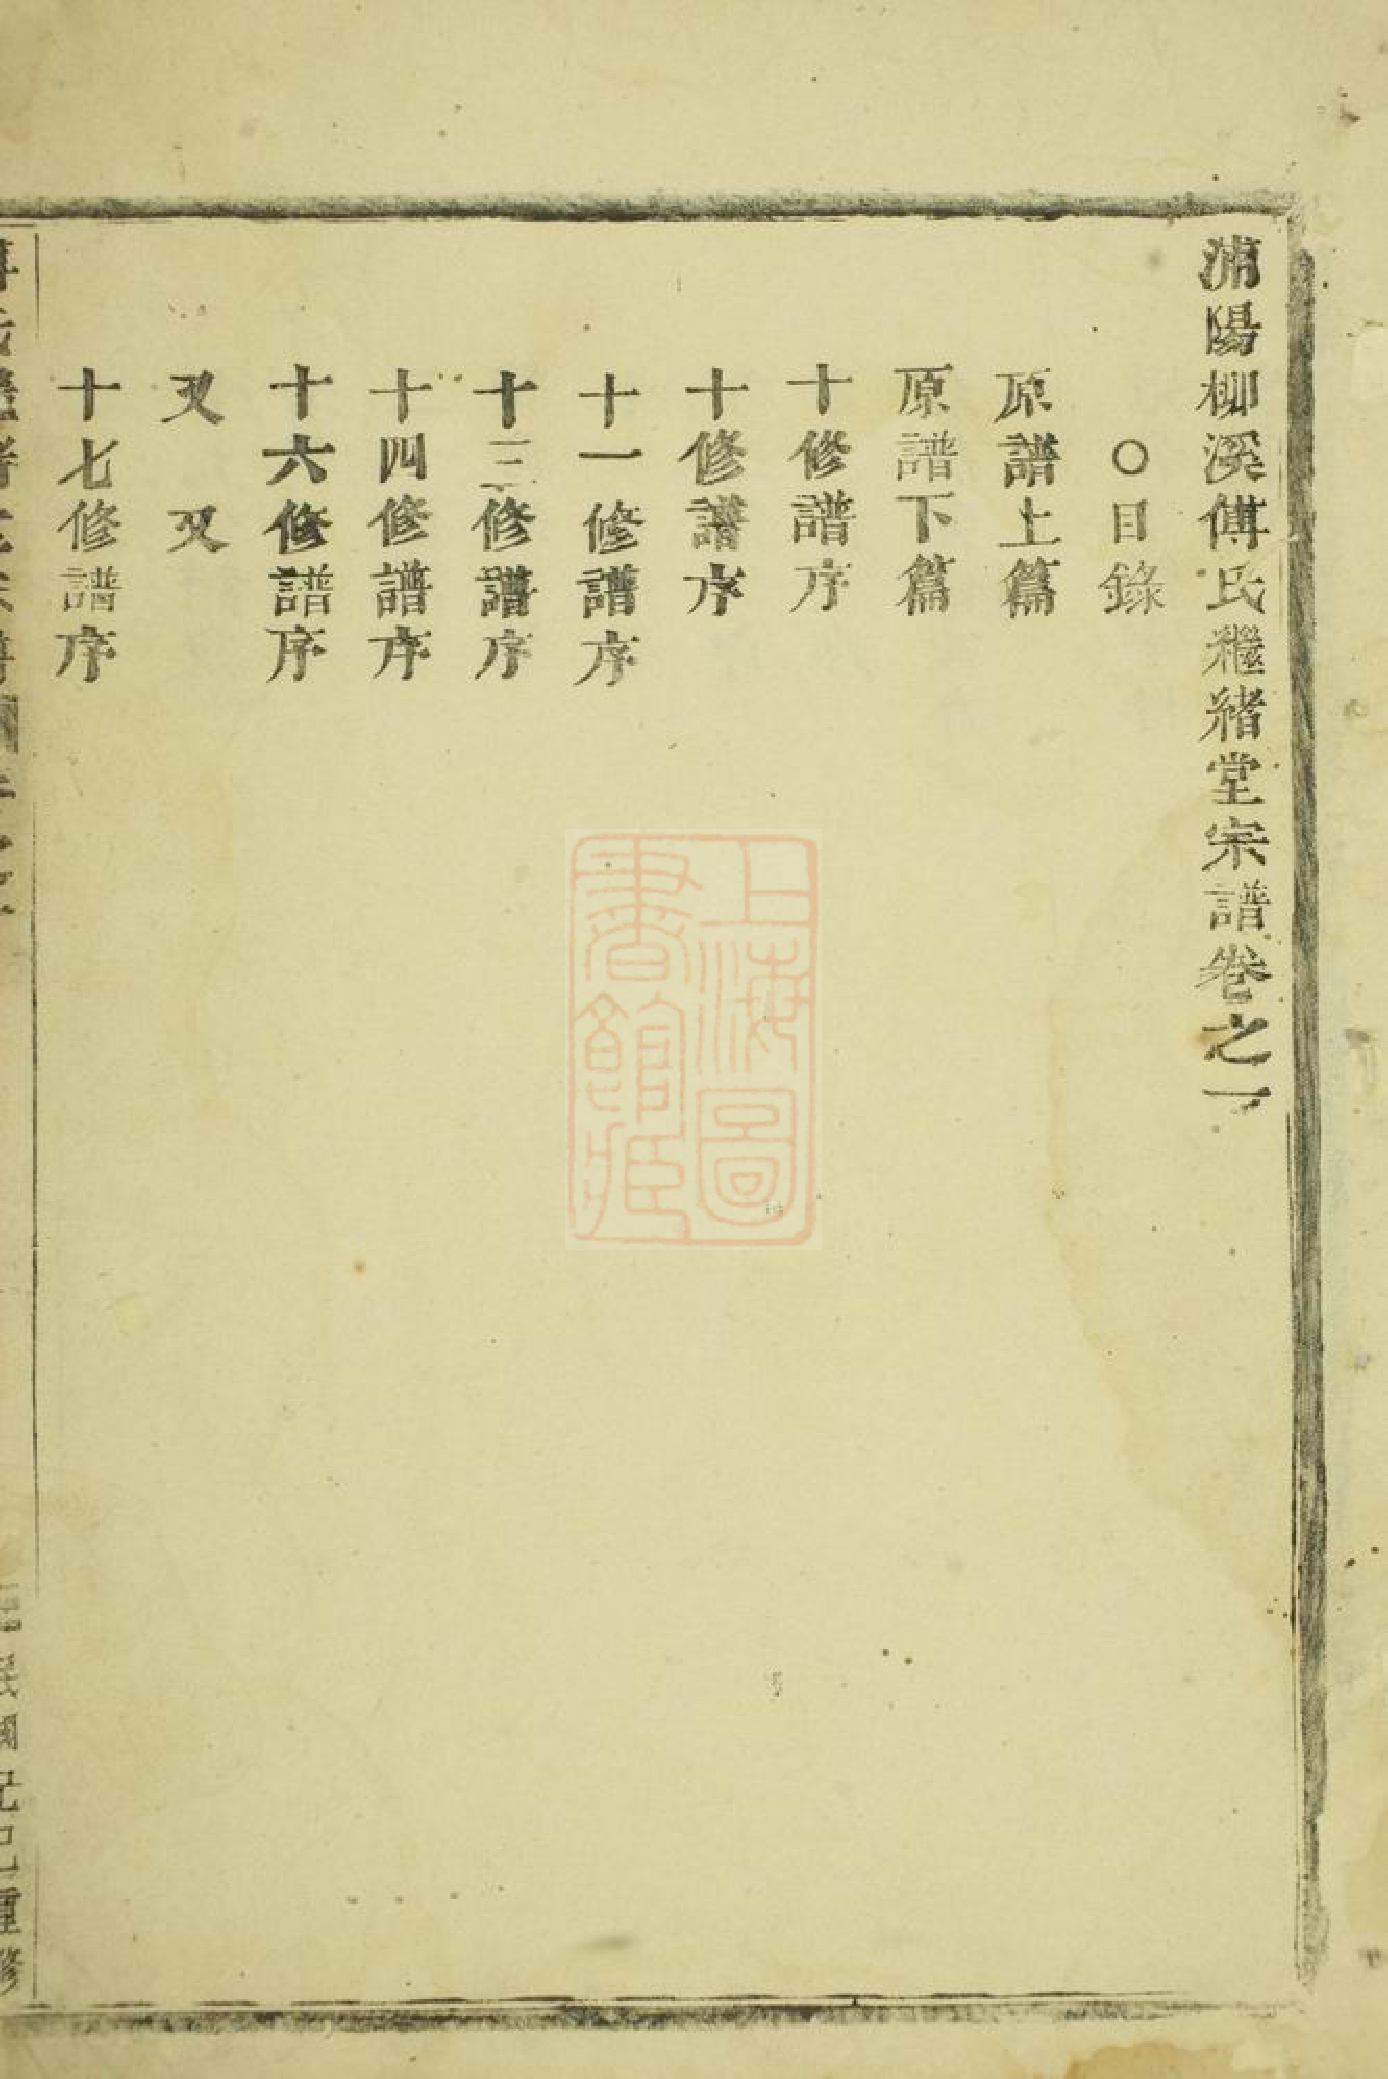 浦陽柳溪傅氏繼緒堂宗譜卷之一
○目錄
原譜上篇
原譜下篇
十修譜序
十修譜序
十一修譜序
十三修譜序
十四修譜序
十六修譜序
又又
十七修譜序
上海圖
書館藏